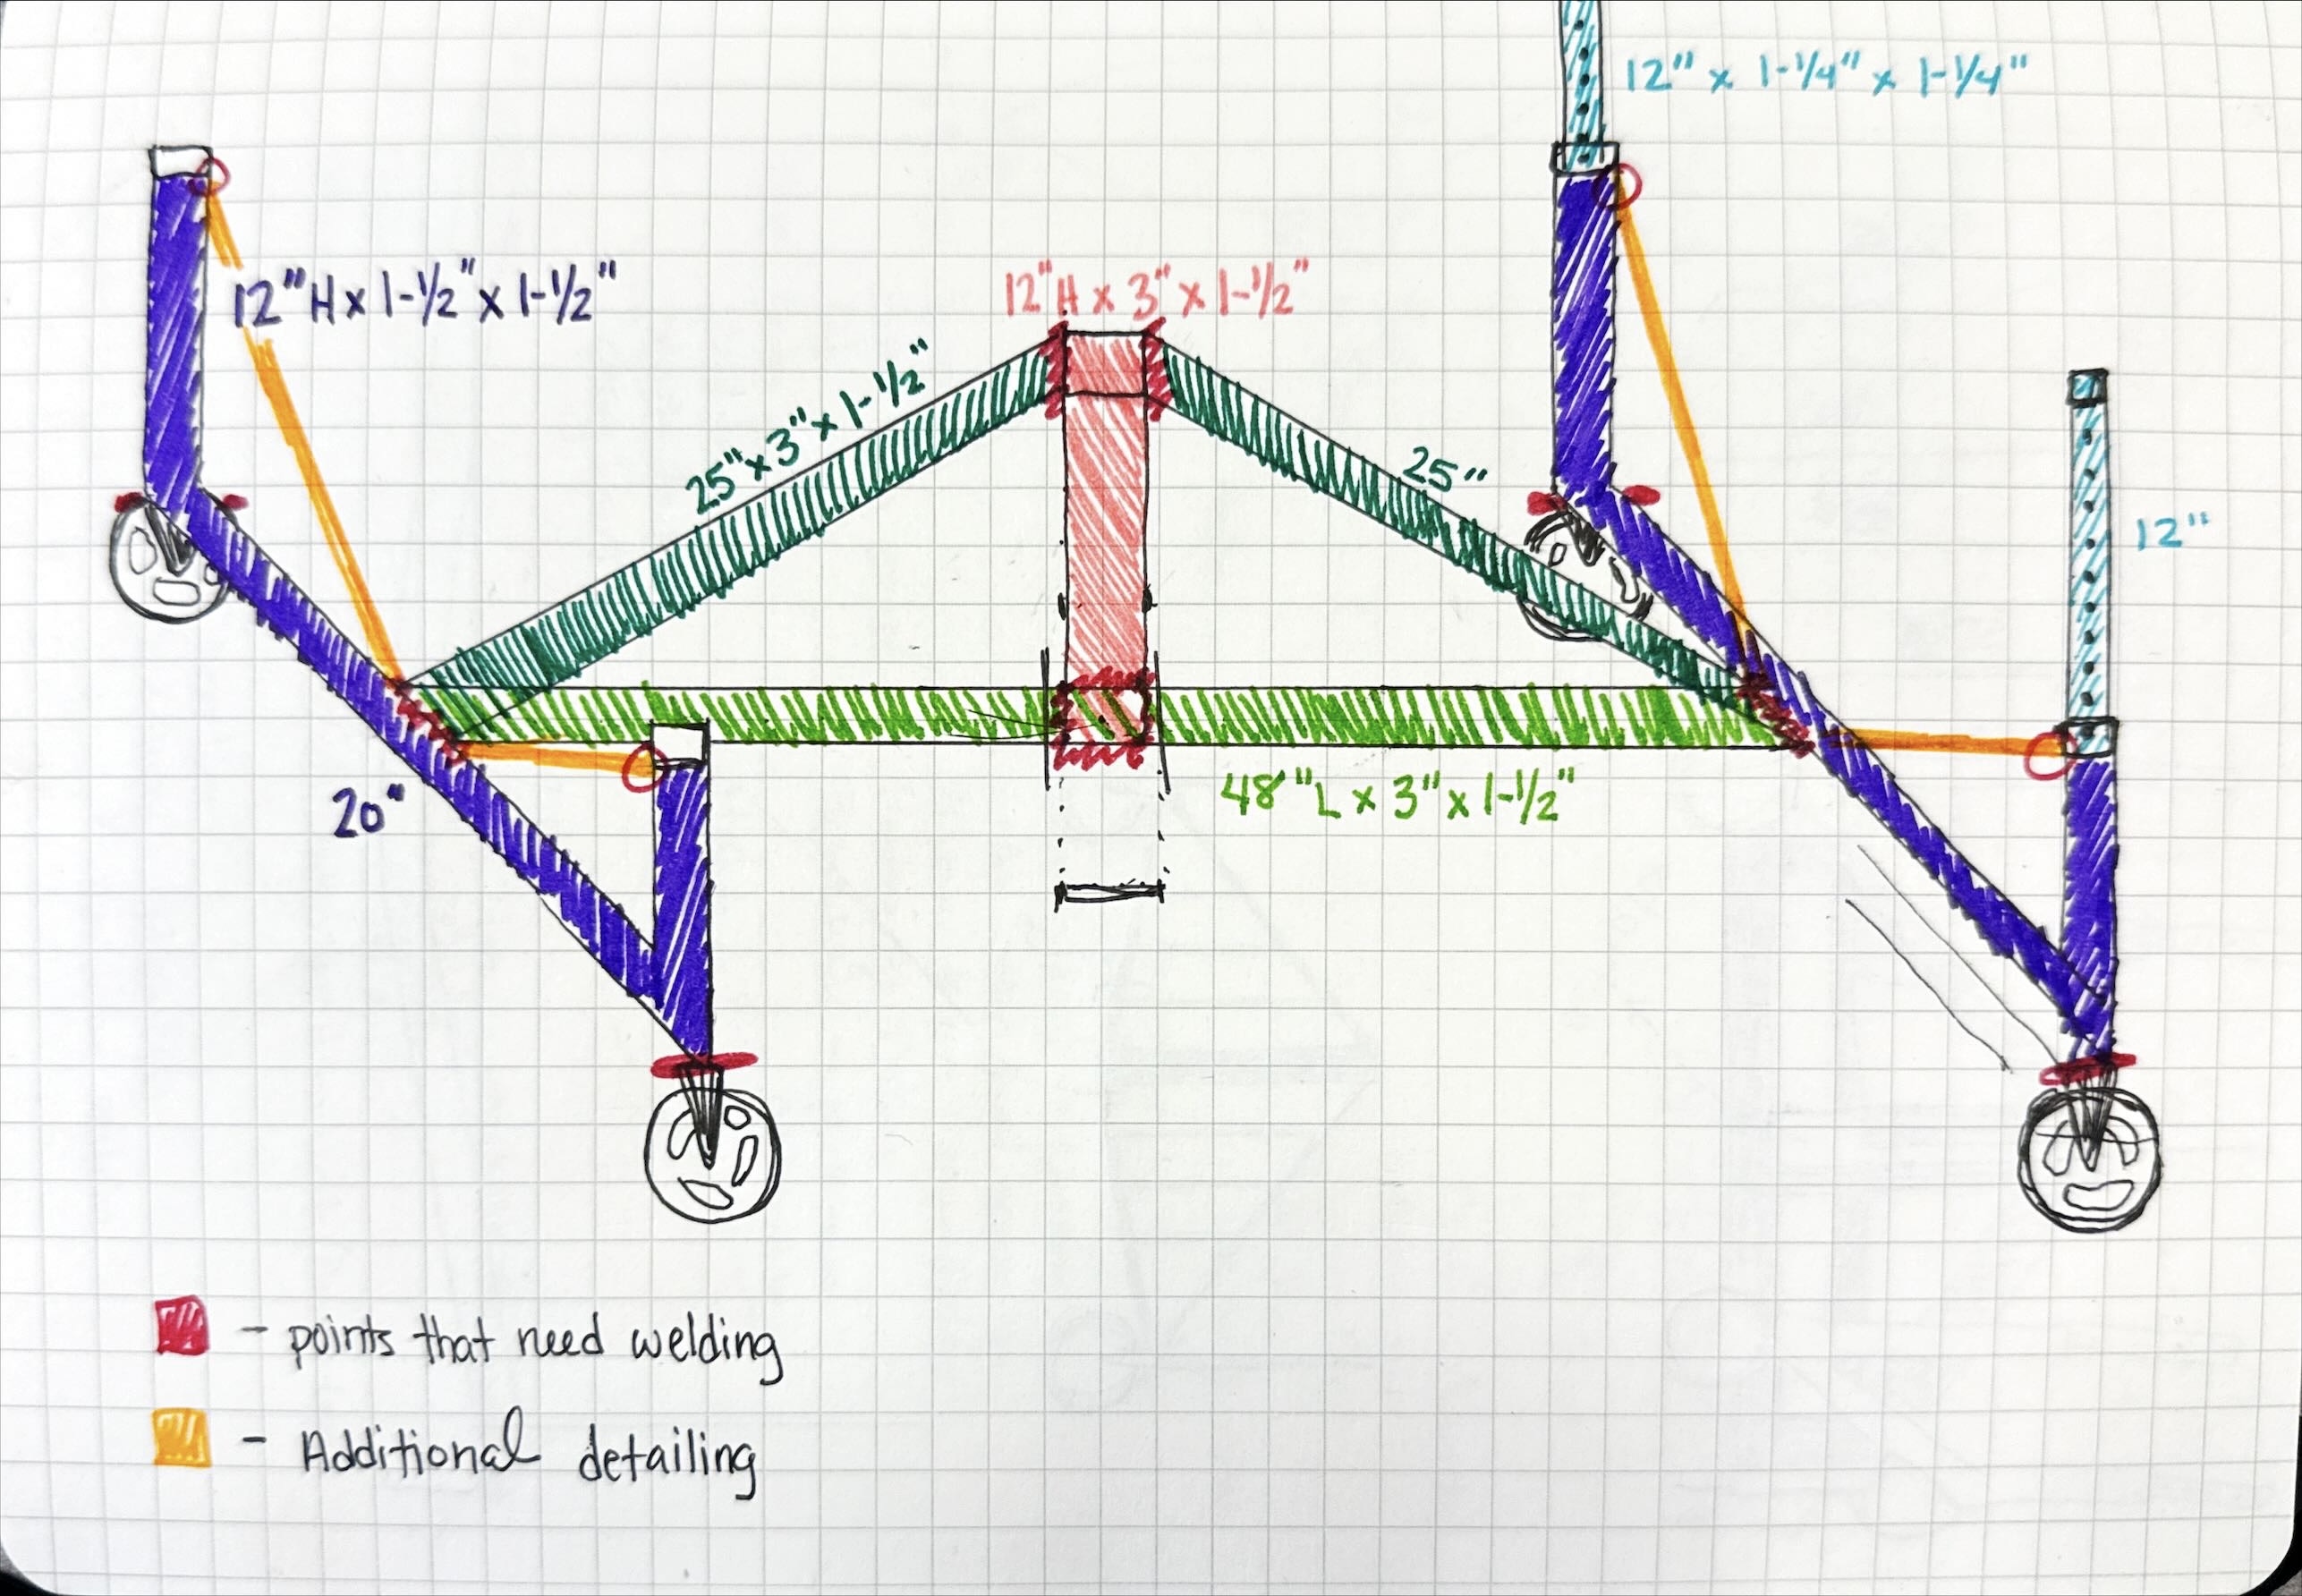 12" x 1-1/4" x 1-1/4"
12"H x 1-1/2" x 1-1/2"
12"H x 3" x 1-1/2"
25" x 3" x 1-1/2"
25"
12"
20"
48"L x 3" x 1-1/2"
- points that need welding
- Additional detailing